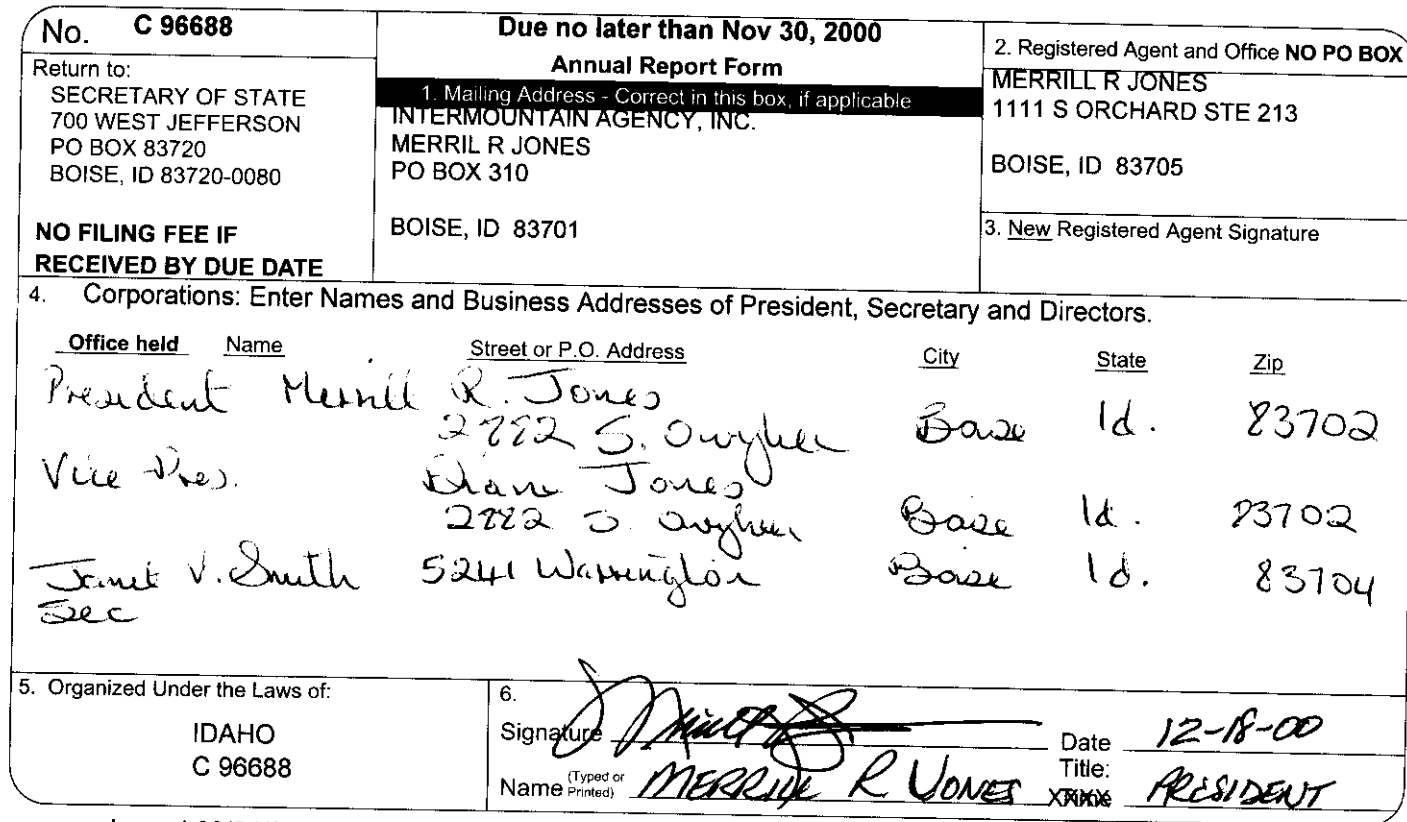 No. C 96688
Return to:
SECRETARY OF STATE
700 WEST JEFFERSON
PO BOX 83720
BOISE, ID 83720-0080
NO FILING FEE IF
RECEIVED BY DUE DATE
Due no later than Nov 30, 2000
Annual Report Form
1. Mailing Address - Correct in this box, if applicable
INTERMOUNTAIN AGENCY, INC.
MERRIL R JONES
PO BOX 310
BOISE, ID 83701
2. Registered Agent and Office NO PO BOX
MERRILL R JONES
1111 S ORCHARD STE 213
BOISE, ID 83705
3. New Registered Agent Signature
4. Corporations: Enter Names and Business Addresses of President, Secretary and Directors.
Office held Name Street or P.O. Address City State Zip
President Merrill R. Jones
S. Boise Id. 83702
Vice Pres. Diane Jones
S. Boise Id. 83702
Janet V. Smith 5241 Boise Id. 83704
Sec
5. Organized Under the Laws of:
IDAHO
C 96688
6.
Signature Date 12-18-00
Name (Typed or Printed) MERRILL R JONES Title: PRESIDENT